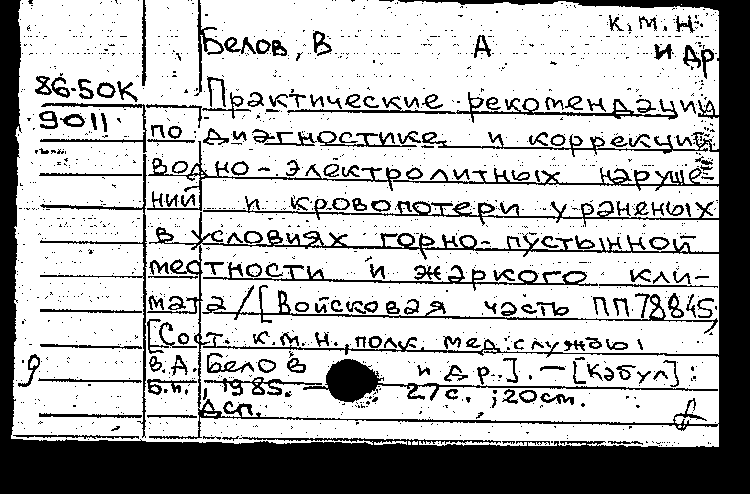 к.м.н.
Белов, В А и др.
86-50К
9011
Практические рекомендации
по диагностике и коррекции
водно-электролитных наруше-
ний и кровопотери у раненых
в условиях горно-пустынной
местности и жаркого кли-
мата/[Войсковая часть ПП 78845;
[Сост. к.м.н., полк. мед. службы
В.А. Белов и др.]. — [Кабул]:
Б.и., 1985. — 27с. ; 20см.
Дсп.